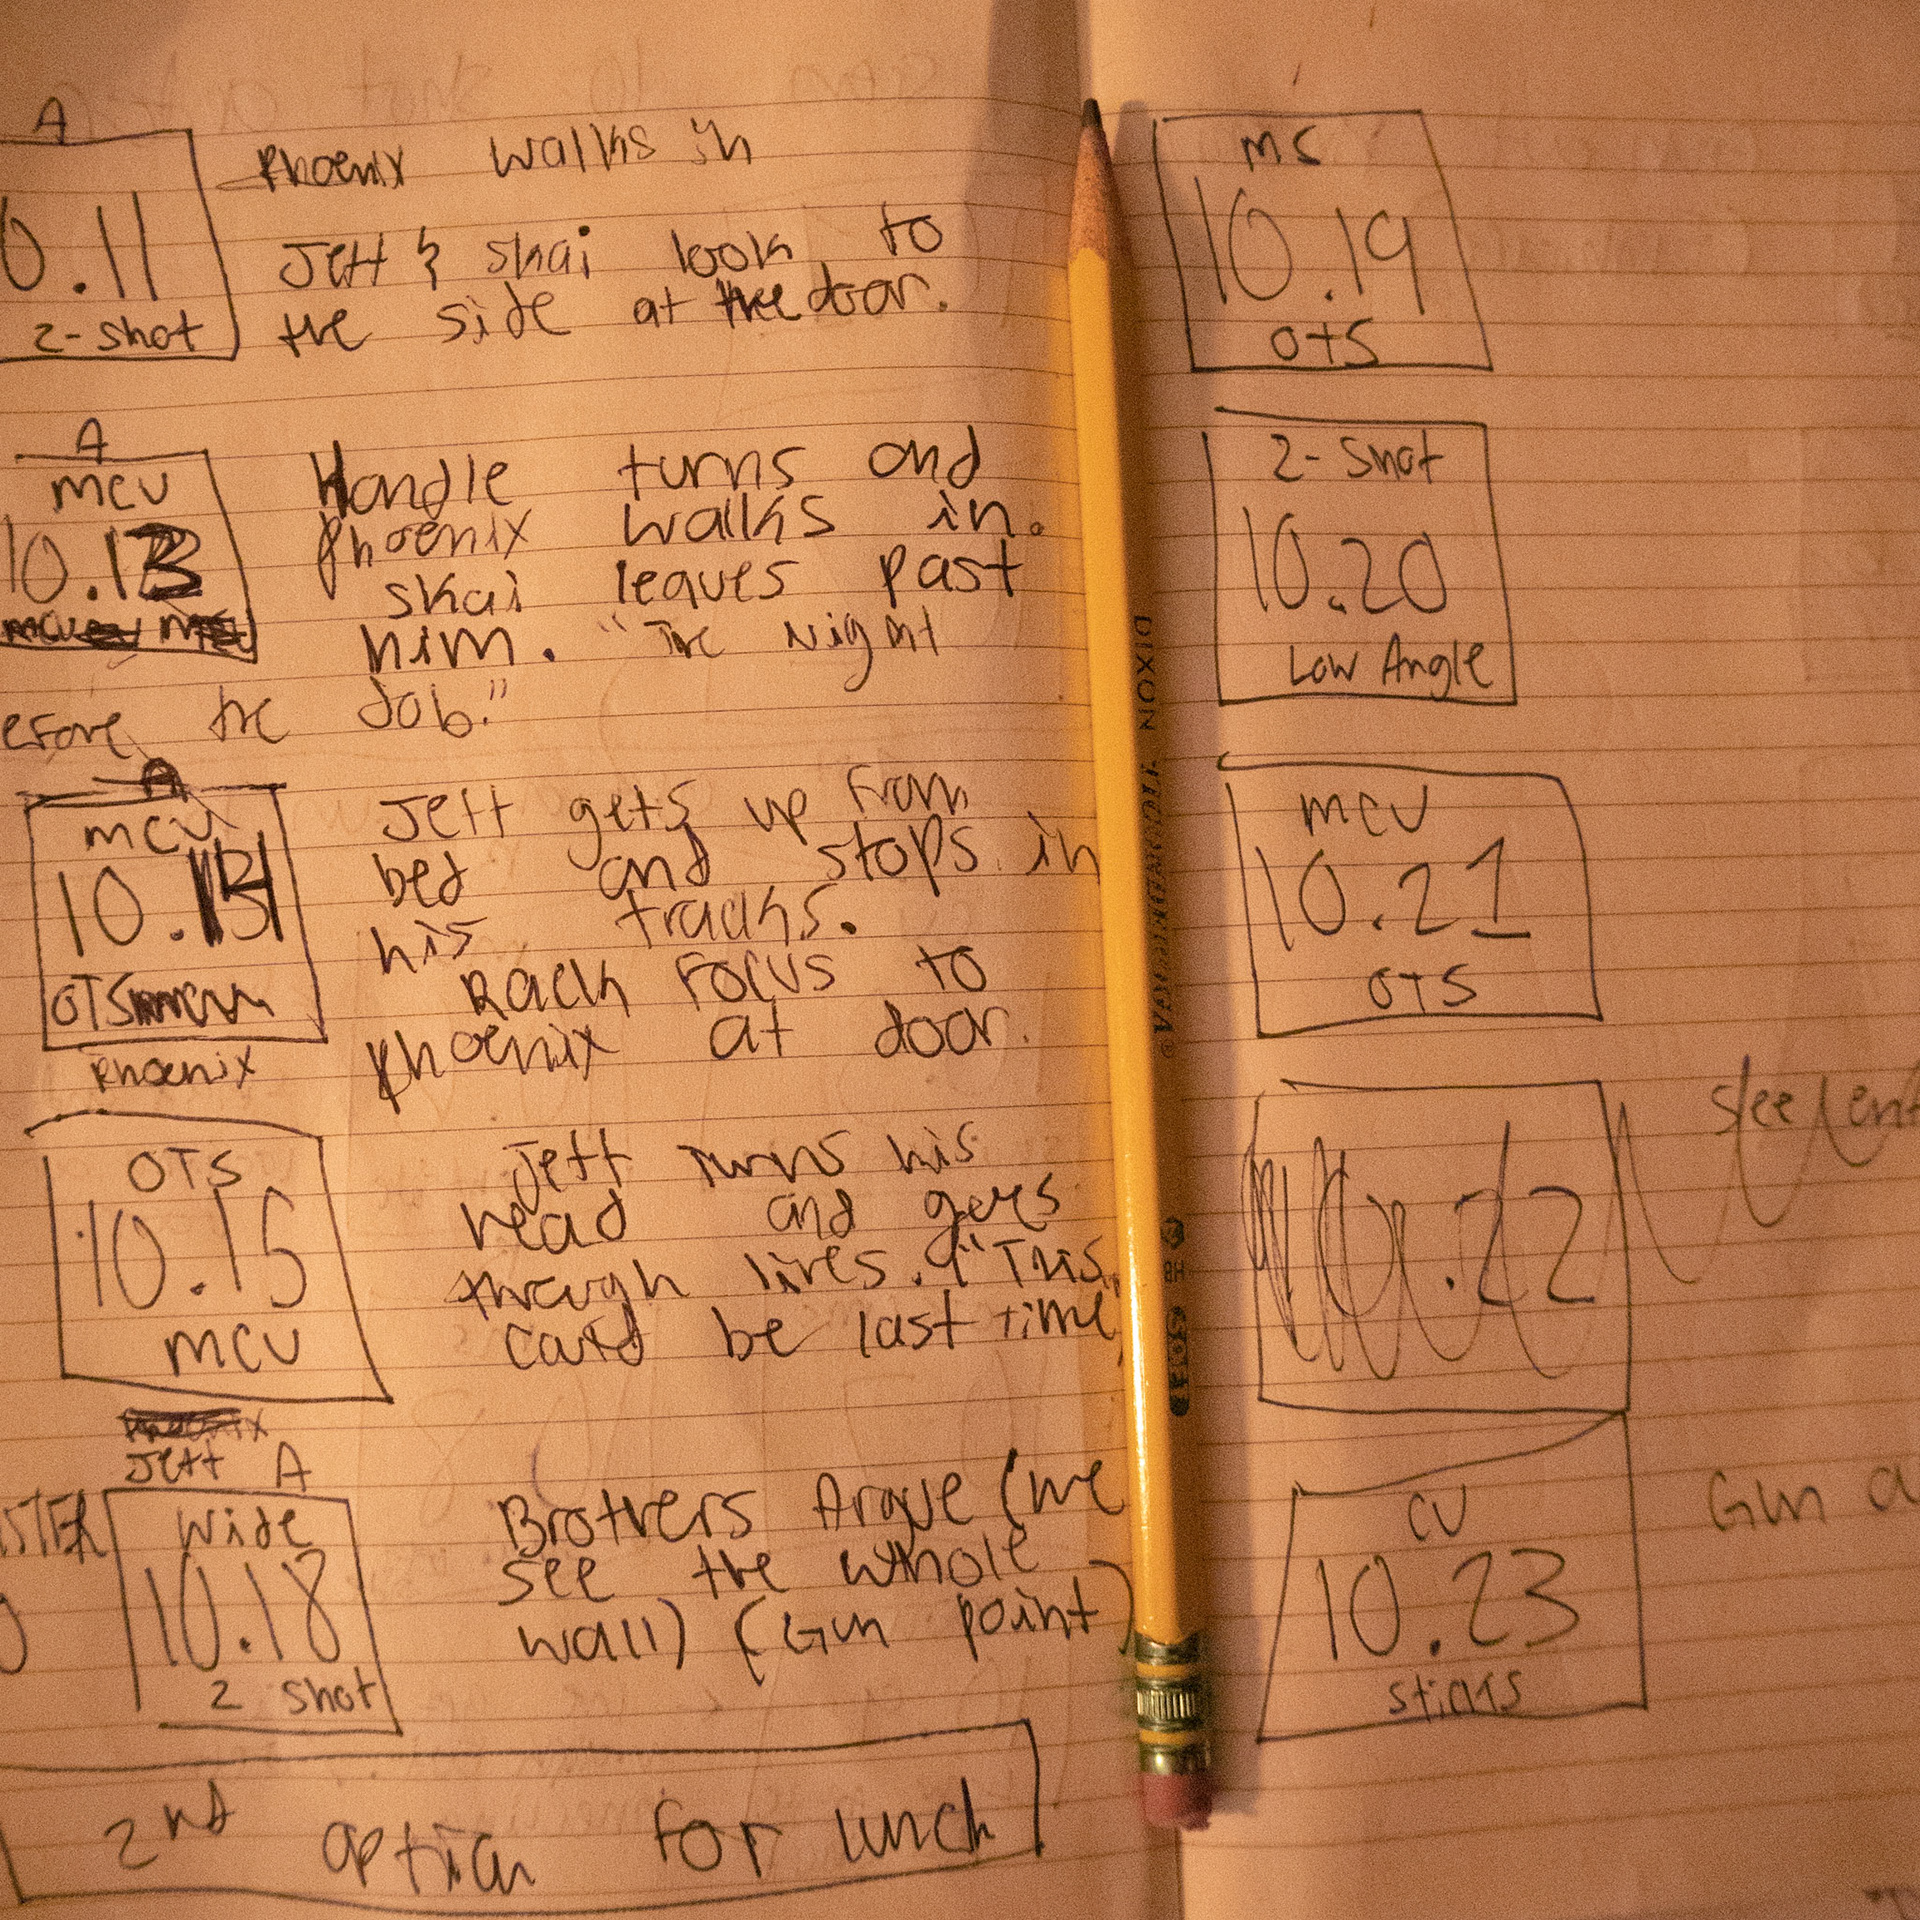 A
0.11
2-shot
Phoenix walks in
Jett & Skai look to
the side at the door.
A
MCU
10.13
MCU
Handle turns and
Phoenix walks in.
Skai leaves past
him. "The Night
efore the Job."
A
MCU
10.14
OTS
Phoenix
Jett gets up from
bed and stops in
his tracks.
Rack Focus to
Phoenix at door.
OTS
10.15
MCU
Jett turns his
head and goes
through lines. "This
could be last time
Jett A
Wide
10.18
2 shot
Brothers Argue (we
see the whole
wall) (Gun point)
2nd option for lunch
DIXON TICONDEROGA®
HB
SOFT
MS
10.19
OTS
2-Shot
10.20
Low Angle
MCU
10.21
OTS
10.22
CU
10.23
sticks
Gun a